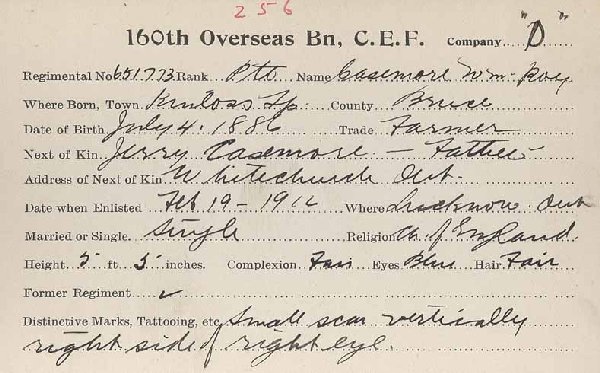 256
160th Overseas Bn, C.E.F. Company "D"
Regimental No 651773 Rank Pte Name Casemore Wm. Roy
Where Born, Town Kinloss Tp. County Bruce
Date of Birth July 4. 1886 Trade Farmer
Next of Kin Jerry Casemore - Father
Address of Next of Kin Whitechurch Ont.
Date when Enlisted Feb 19 - 1916 Where Lucknow Ont
Married or Single Single Religion Ch of England.
Height 5 ft 5 inches. Complexion Fair Eyes Blue Hair Fair
Former Regiment
Distinctive Marks, Tattooing, etc Small scar vertically
right side of right eye.